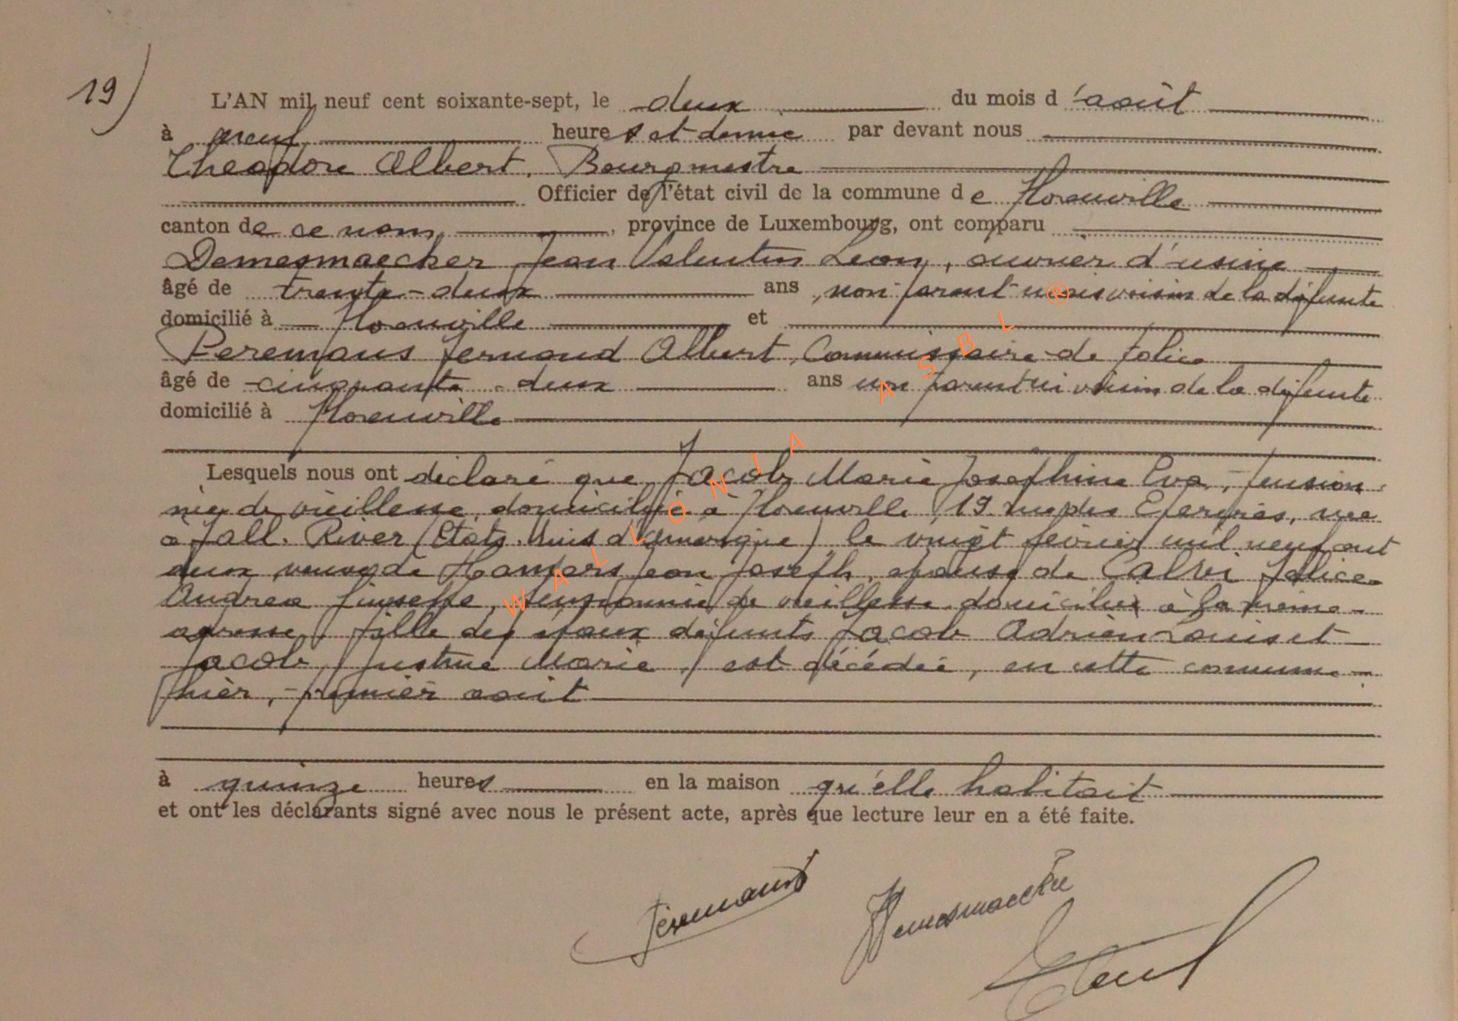 19)
L'AN mil neuf cent soixante-sept, le deux du mois d'août
à neuf heures et demie par devant nous
Theodore Albert, Bourgmestre
Officier de l'état civil de la commune de Florenville
canton de ce nom, province de Luxembourg, ont comparu
Demesmaecker Jean Valentin Léon, ouvrier d'usine
âgé de trente-deux ans, non parent voisin de la défunte
domicilié à Florenville et
Peremans Fernand Albert, Commissaire de Police
âgé de cinquante-deux ans non parent ni voisin de la défunte
domicilié à Florenville
Lesquels nous ont déclaré que Jacob Marie Joséphine Eva, pension-
née de vieillesse, domiciliée à Florenville, 19 rue des Epergnes, née
à Fall. River (Etats. Unis d'Amérique) le vingt février mil neuf cent
deux, veuve de Hansers Jean Joseph, épouse de Calvi Felice
Andrea Giuseppe, pensionné de vieillesse domicilié à la même
adresse, fille des époux défunts Jacob Adrien Louis et
Jacob, Justine Marie, est décédée, en cette commune
hier, premier août
à quinze heures en la maison qu'elle habitait
et ont les déclarants signé avec nous le présent acte, après que lecture leur en a été faite.
Peremans Demesmaecker
WALLONIA ASBL ©